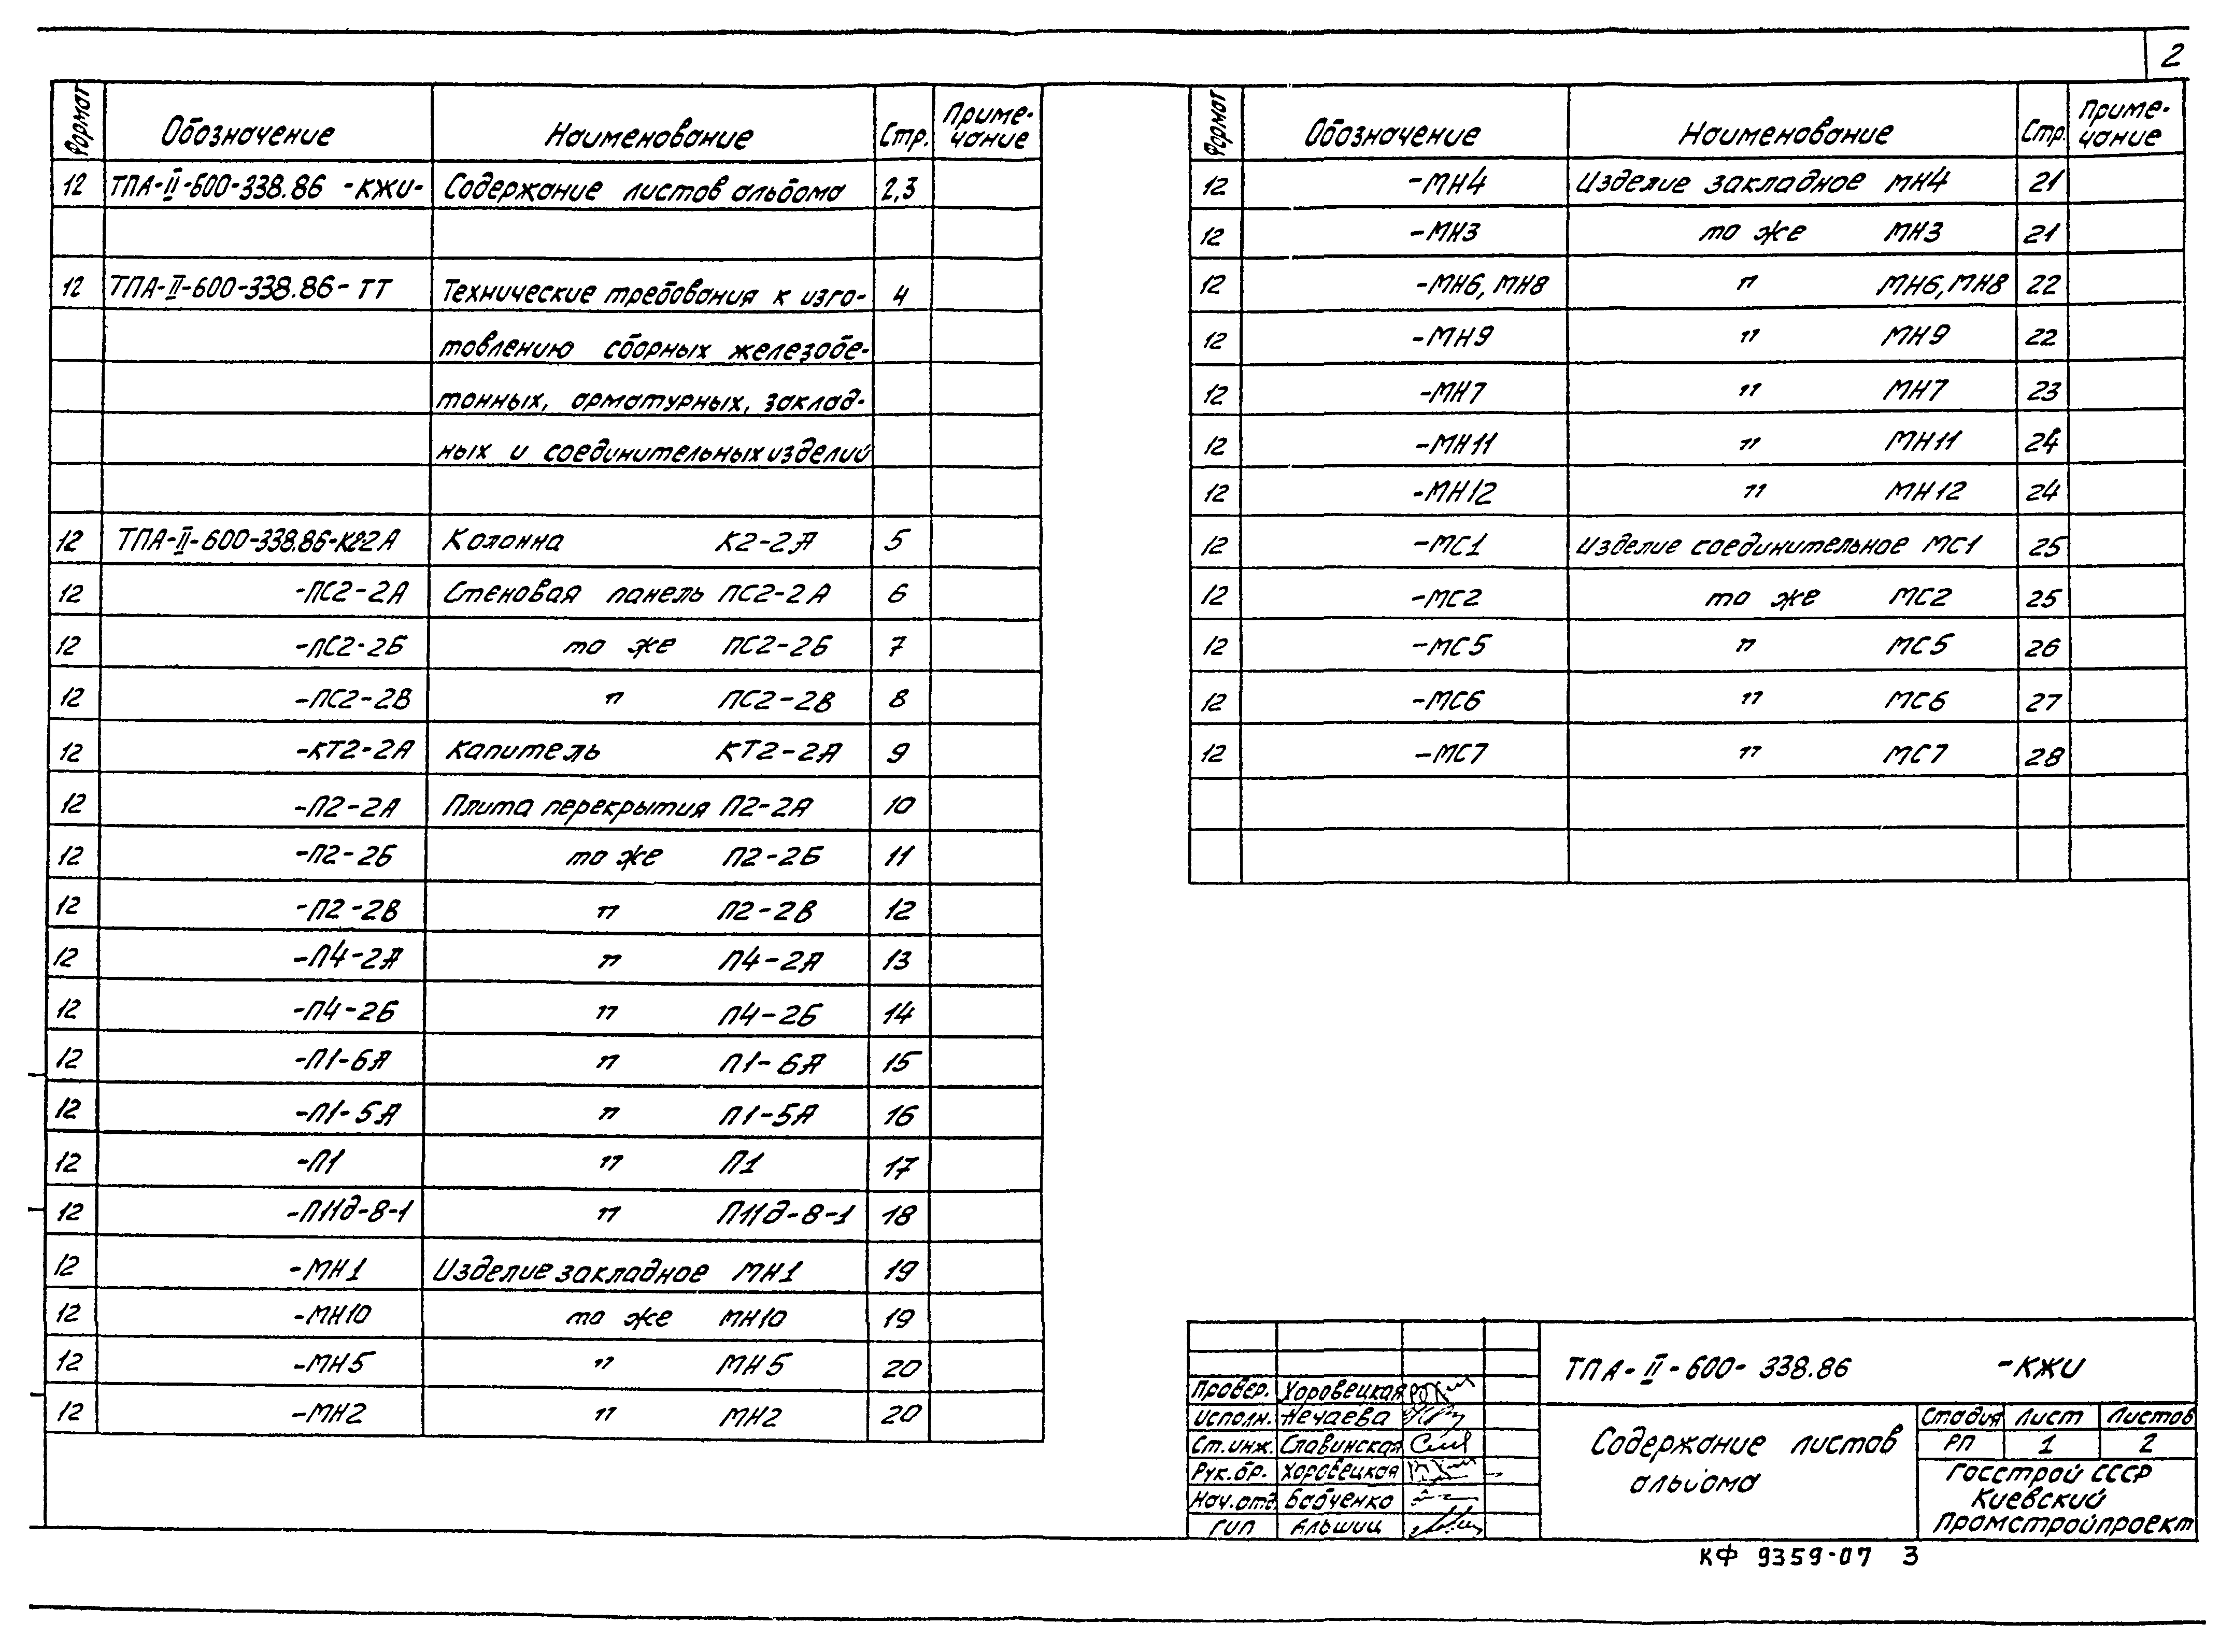 2
Формат Обозначение Наименование Стр. Приме-чание
12 ТПА-II-600-338.86 -КЖИ- Содержание листов альбома 2,3
12 ТПА-II-600-338.86-ТТ Технические требования к изго- 4
товлению сборных железобе-
тонных, арматурных, заклад-
ных и соединительных изделий
12 ТПА-II-600-338.86-К22А Колонна К2-2А 5
12 -ПС2-2А Стеновая панель ПС2-2А 6
12 -ПС2-2Б то же ПС2-2Б 7
12 -ПС2-2В " ПС2-2В 8
12 -КТ2-2А Капитель КТ2-2А 9
12 -П2-2А Плита перекрытия П2-2А 10
12 -П2-2Б то же П2-2Б 11
12 -П2-2В " П2-2В 12
12 -П4-2А " П4-2А 13
12 -П4-2Б " П4-2Б 14
12 -П1-6А " П1-6А 15
12 -П1-5А " П1-5А 16
12 -П1 " П1 17
12 -П11д-8-1 " П11д-8-1 18
12 -МН1 Изделие закладное МН1 19
12 -МН10 то же МН10 19
12 -МН5 " МН5 20
12 -МН2 " МН2 20
Формат Обозначение Наименование Стр. Приме-чание
12 -МН4 Изделие закладное МН4 21
12 -МН3 то же МН3 21
12 -МН6, МН8 " МН6, МН8 22
12 -МН9 " МН9 22
12 -МН7 " МН7 23
12 -МН11 " МН11 24
12 -МН12 " МН12 24
12 -МС1 Изделие соединительное МС1 25
12 -МС2 то же МС2 25
12 -МС5 " МС5 26
12 -МС6 " МС6 27
12 -МС7 " МС7 28
Провер. Хоровецкая
Исполн. Нечаева
Ст.инж. Славинская
Рук.бр. Хоровецкая
Нач.отд. Бабченко
ГИП Альшиц
ТПА-II-600-338.86 -КЖИ
Содержание листов
альбома
Стадия Лист Листов
РП 1 2
Госстрой СССР
Киевский
Промстройпроект
КФ 9359-07 3